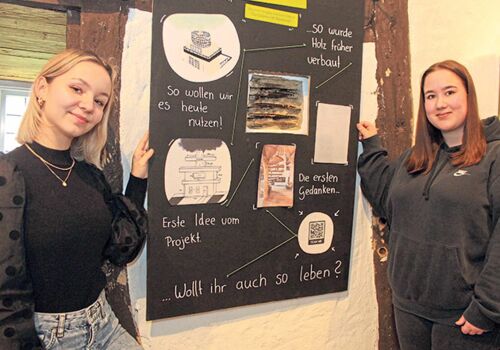 ...so wurde
Holz früher
verbaut
So wollen wir
es heute
nutzen!
Die ersten
Gedanken...
Erste Idee vom
Projekt.
...Wollt ihr auch so leben?